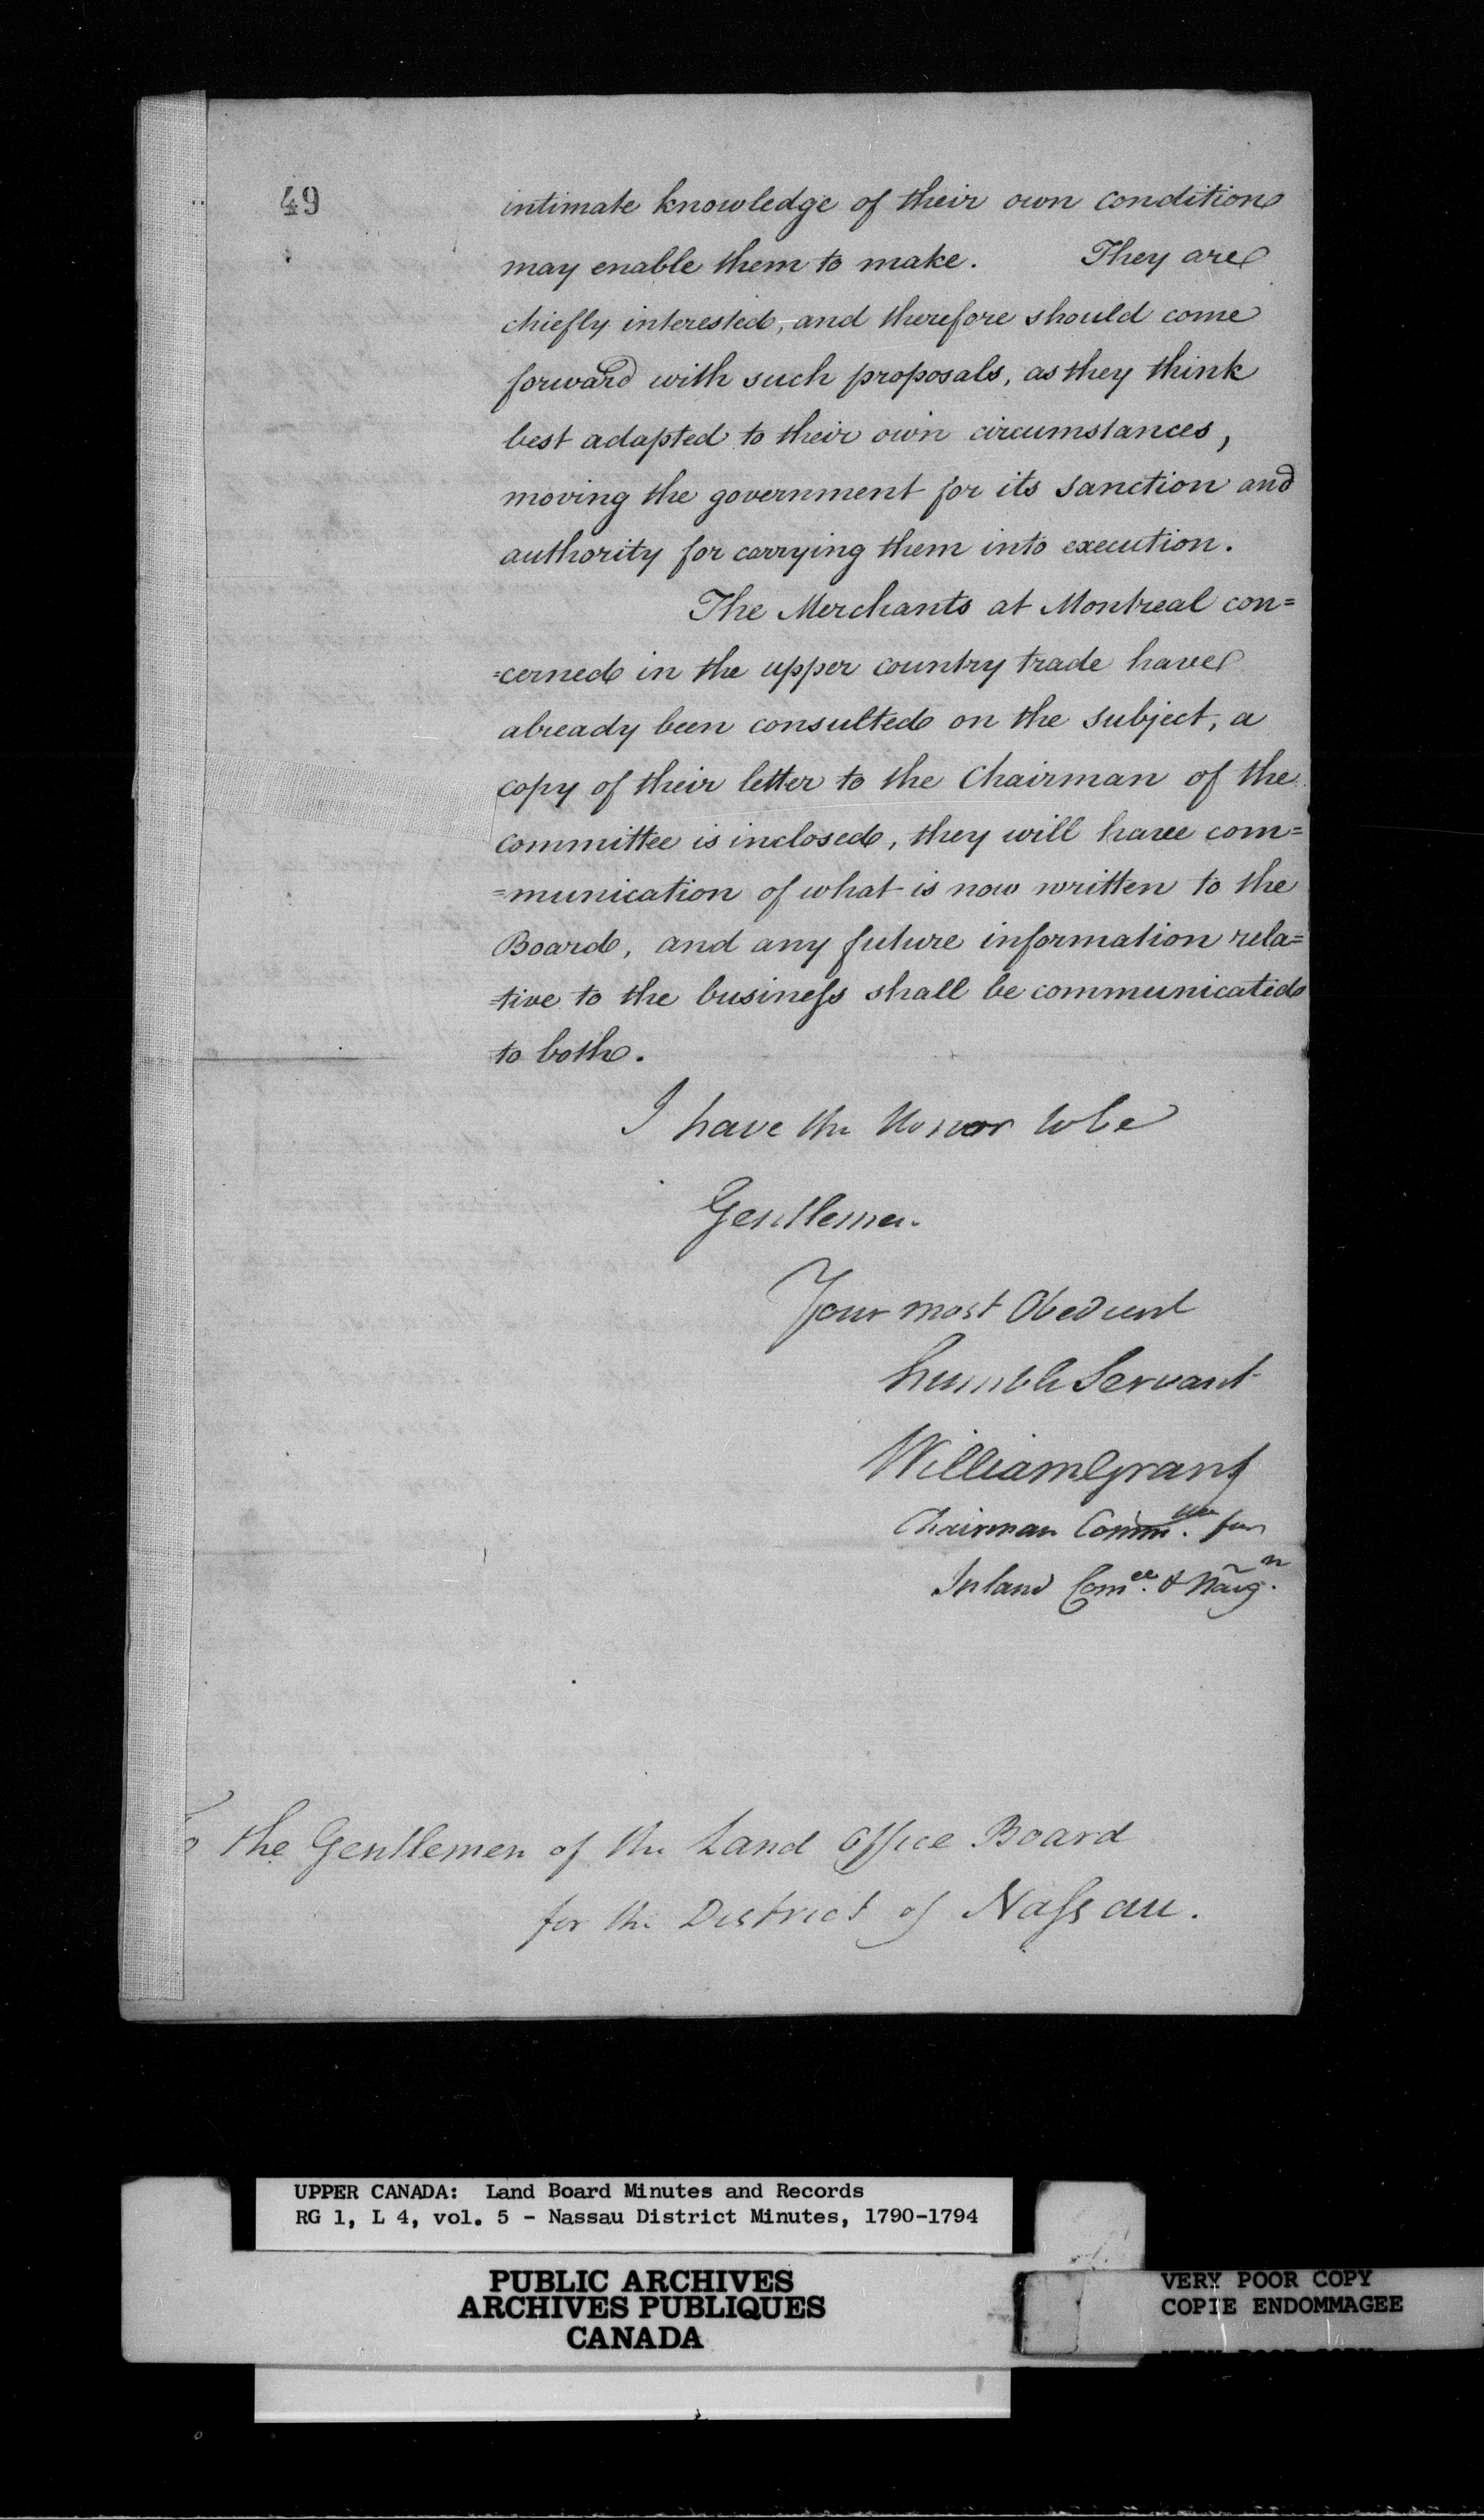 49
intimate knowledge of their own condition
may enable them to make. They are
chiefly interested, and therefore should come
forward with such proposals, as they think
best adapted to their own circumstances,
moving the government for its sanction and
authority for carrying them into execution.
The Merchants at Montreal con=
=cerned in the upper country trade have
already been consulted on the subject, a
copy of their letter to the Chairman of the
committee is inclosed, they will have com=
=munication of what is now written to the
Board, and any future information rela=
=tive to the business shall be communicated
to both.
I have the Honor to be
Gentlemen
Your most Obedient
humble Servant
William Grant
Chairman Commttee for
Inland Comce. & Navgn.
To the Gentlemen of the Land Office Board
for the District of Nassau.
UPPER CANADA: Land Board Minutes and Records
RG 1, L 4, vol. 5 - Nassau District Minutes, 1790-1794
PUBLIC ARCHIVES
ARCHIVES PUBLIQUES
CANADA
VERY POOR COPY
COPIE ENDOMMAGEE